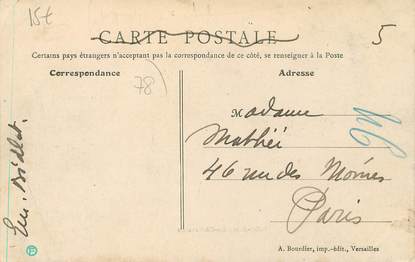 15€
CARTE POSTALE
5
Certains pays étrangers n'acceptant pas la correspondance de ce côté, se renseigner à la Poste
Correspondance
Adresse
78
Madame
Mathieu
46 rue des
Paris
46
A. Bourdier, imp.-édit., Versailles